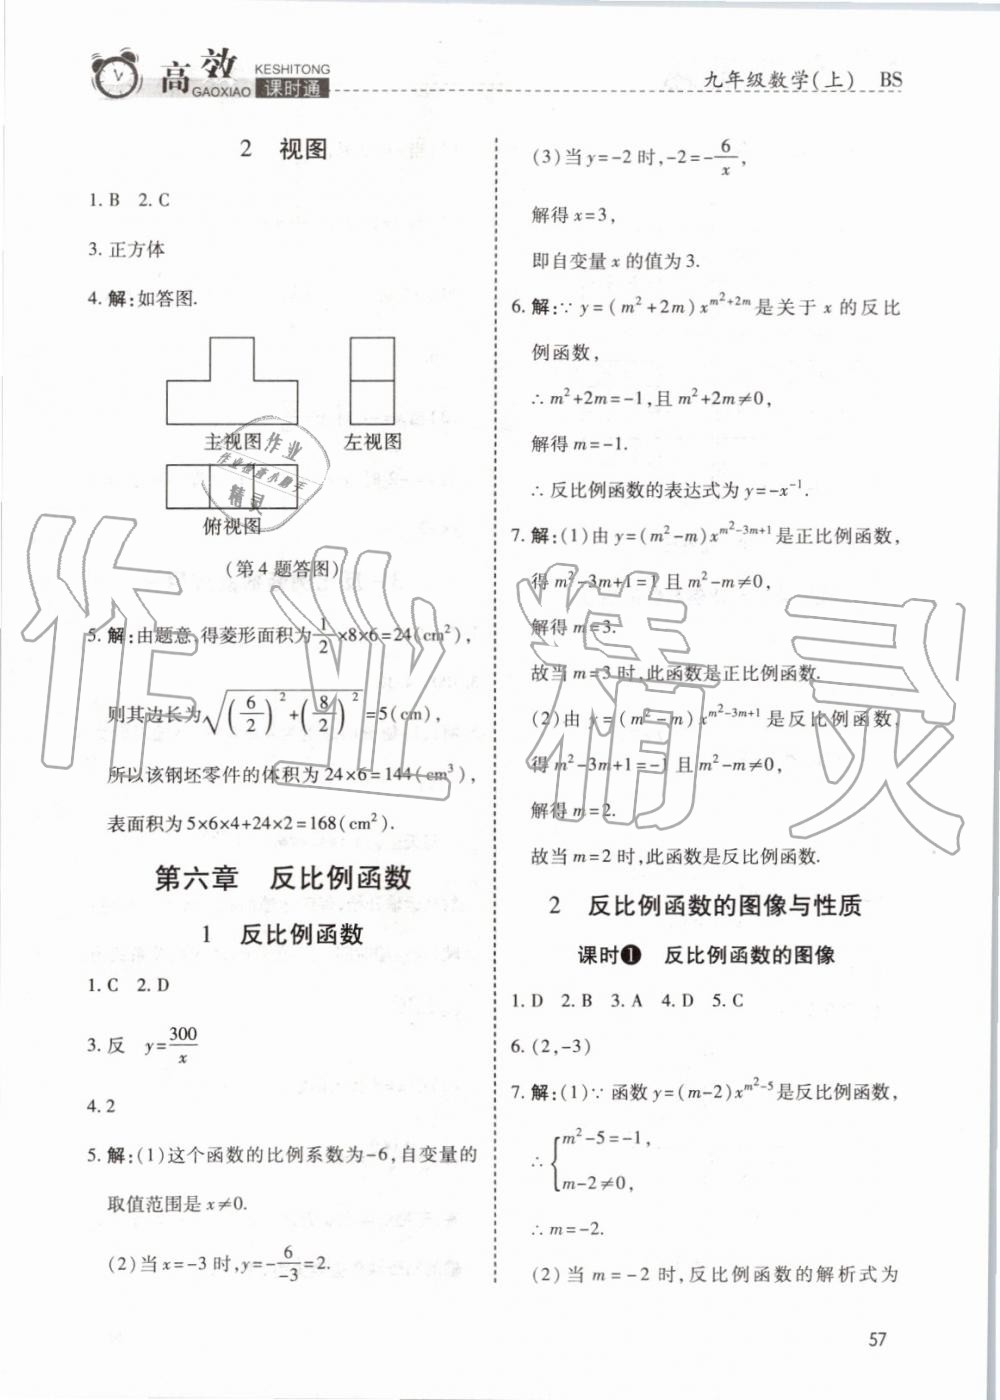 高效 KESHITONG
GAOXIAO 课时通
九年级数学(上) BS
2 视图
1. B 2. C
3. 正方体
4. 解:如答图.
主视图 左视图
俯视图
(第4题答图)
5. 解:由题意,得菱形面积为1/2×8×6=24(cm²),
则其边长为√((6/2)²+(8/2)²)=5(cm),
所以该钢坯零件的体积为24×6=144(cm³),
表面积为5×6×4+24×2=168(cm²).
第六章 反比例函数
1 反比例函数
1. C 2. D
3. 反 y=300/x
4. 2
5. 解:(1)这个函数的比例系数为-6,自变量的
取值范围是x≠0.
(2)当x=-3时,y=-6/-3=2.
(3)当y=-2时,-2=-6/x,
解得x=3,
即自变量x的值为3.
6. 解:∵y=(m²+2m)x^(m²+2m)是关于x的反比
例函数,
∴m²+2m=-1,且m²+2m≠0,
解得m=-1.
∴反比例函数的表达式为y=-x⁻¹.
7. 解:(1)由y=(m²-m)x^(m²-3m+1)是正比例函数,
得m²-3m+1=1且m²-m≠0,
解得m=3.
故当m=3时,此函数是正比例函数.
(2)由y=(m²-m)x^(m²-3m+1)是反比例函数,
得m²-3m+1=-1且m²-m≠0,
解得m=2.
故当m=2时,此函数是反比例函数.
2 反比例函数的图像与性质
课时❶ 反比例函数的图像
1. D 2. B 3. A 4. D 5. C
6. (2,-3)
7. 解:(1)∵函数y=(m-2)x^(m²-5)是反比例函数,
∴{m²-5=-1,
m-2≠0,
∴m=-2.
(2)当m=-2时,反比例函数的解析式为
57
作业
作业检查小助手
精灵
作业精灵